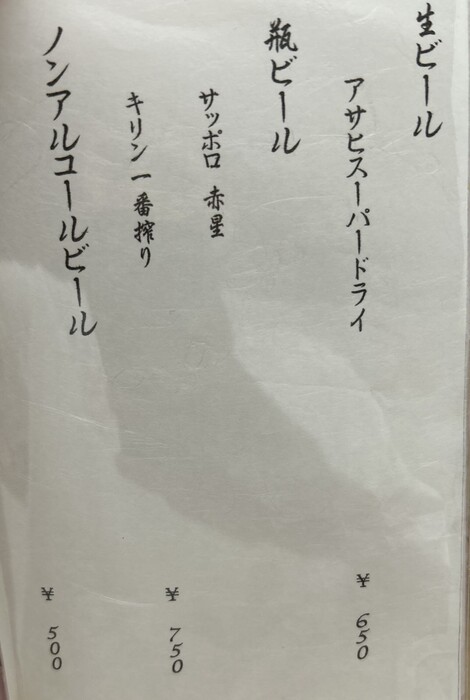 生ビール
アサヒスーパードライ
¥ 650
瓶ビール
サッポロ 赤星
キリン 一番搾り
¥ 750
ノンアルコールビール
¥ 500